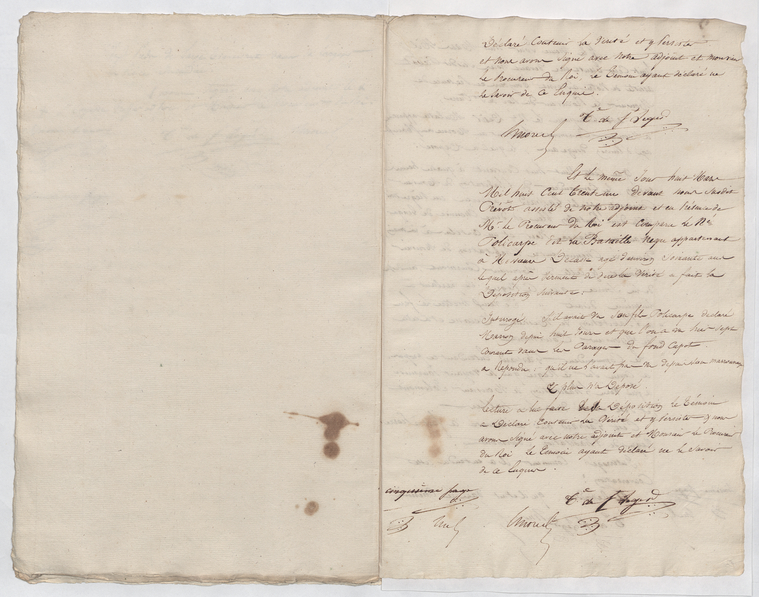 Déclaré Contenir la Vérité et y Persister
et nous avons signé avec notre adjoint et monsieur
le Procureur du Roi, le Témoin ayant declaré ne
le Savoir de Ce Enquis.
Et le même Jour huit
Mil huit Cent trente devant nous Susdit
Prévôt assisté de notre adjoint et en présence de
Mr. le Procureur du Roi est Comparu le Ne.
Policarpe dit la Bataille Negre appartenant
à agé d'environ Soixante ans
lequel après Serment de dire la Vérité a faite la
Déposition Suivante:
Interrogé s'il avait vu Son fils Policarpe déclaré
Marron depuis huit Jours et que l'on a vu
dans les Parages du fond Capot.
a Répondu, qu'il ne l'avait pas vu depuis Son marronage
Et plus n'a Déposé
Lecture a lui faite de Sa Déposition le Témoin
a Déclaré Contenir la Vérité et y Persister & nous
avons signé avec notre adjoint et Monsieur le Procureur
du Roi le Témoin ayant déclaré ne le Savoir
de ce Enquis.
cinquième page